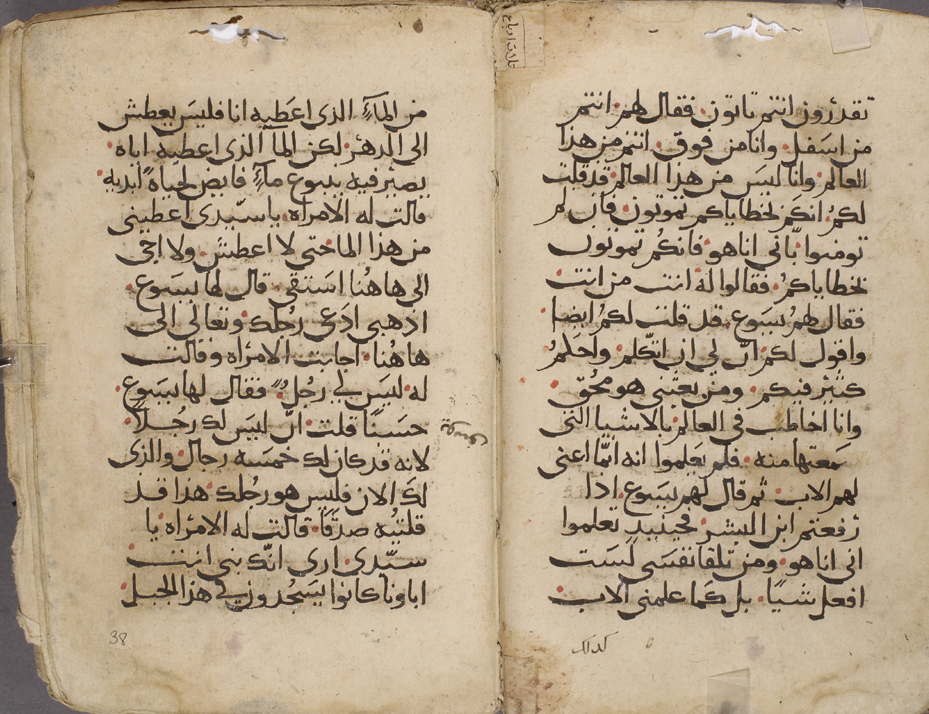 تقدرون انتم تاتون فقال لهم انتم
من اسفل وانا من فوق انتم من هذا
العالم وانا ليس من هذا العالم قد قلت
لكم انكم بخطاياكم تموتون فان لم
تومنوا بانى انا هو فانكم تموتون
بخطاياكم فقالوا له انت من انت
فقال لهم يسوع قد قلت لكم ايضا
واقول لكم ان لى ان اتكلم واحكم
كثير فيكم ومن بعثنى هو محق
وانا اخاطب فى العالم بالاشيا التى
سمعتها منه فلم يعلموا انه انما اعنى
لهم الاب ثم قال لهم يسوع اذا
رفعتم ابن البشر فحينيذ تعلموا
انى انا هو ومن تلقا نفسى لست
افعل شيا بل كما علمنى الاب
كذلك
ثلاث ارباع
من الما الذى اعطيه انا فليس يعطش
الى الدهر لكن الما الذى اعطيه اياه
يصير فيه ينبوع ما فايض لحياة ابديه
قالت له الامراه يا سيدى اعطينى
من هذا الما حتى لا اعطش ولا اجى
الى هاهنا استقى قال لها يسوع
اذهبى ادعى رجلك وتعالى الى
هاهنا اجابت الامراه وقالت
له ليس لى رجل فقال لها يسوع
حسنا قلت ان ليس لك رجلا
لانه قد كان لك خمسه رجال والذى
لك الان فليس هو رجلك هذا قد
قلتيه صدقا قالت له الامراه يا
سيدى ارى انك نبى انت
اباونا كانوا يسجدون فى هذا الجبل
38